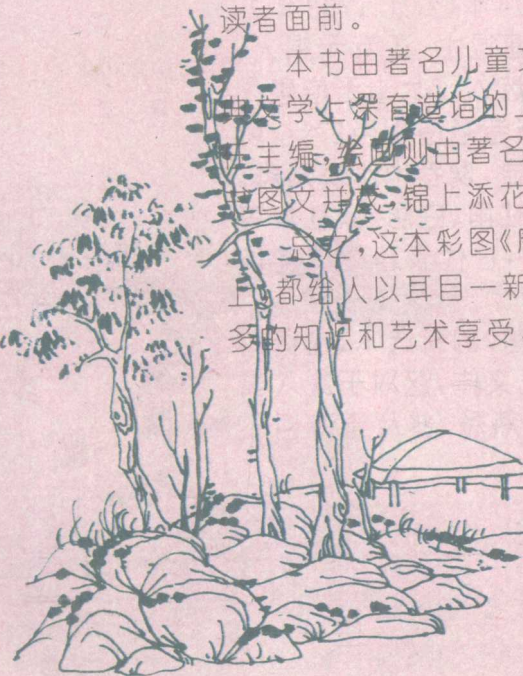 读者面前。
本书由著名儿童
文学上深有造诣的
主编,绘画则由著名
图文并茂,锦上添花
总之,这本彩图《
上,都给人以耳目一新
多的知识和艺术享受